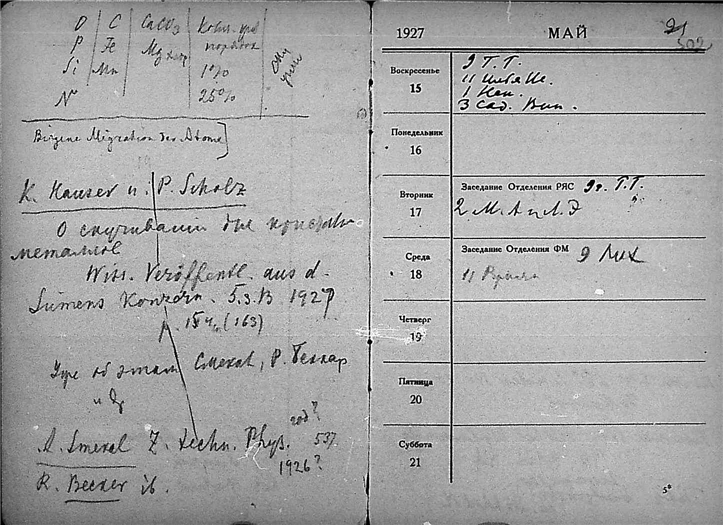 O C CaCO3
P Fe Mg
Si Mn 1%
N 25%
Biogene Migration der Atome
K. Hauser u. P. Scholz
О скручивании
металлов
Wiss. Veröffentl. aus d.
Siemens Konzern. 5.3.B 1927
p. (163)
Уже об этом Смекал, Р. Беккер
и др
год?
A. Smekal Z. techn. Phys. 537
1926?
R. Becker ib.
1927 МАЙ 21
502
Воскресенье
15
9 Т.Т.
11
1
3 Сад. Вин.
Понедельник
16
Вторник
17
Заседание Отделения РЯС 9 Т.Т.
2 М.А и Л.Э
Среда
18
Заседание Отделения ФМ 9 Лих
11
Четверг
19
Пятница
20
Суббота
21
5*